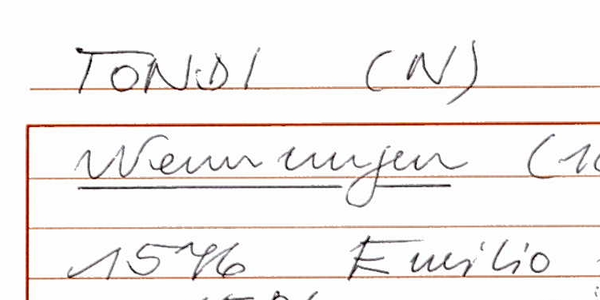 TONDI (N)
Wennungen (10
1576 Emilio